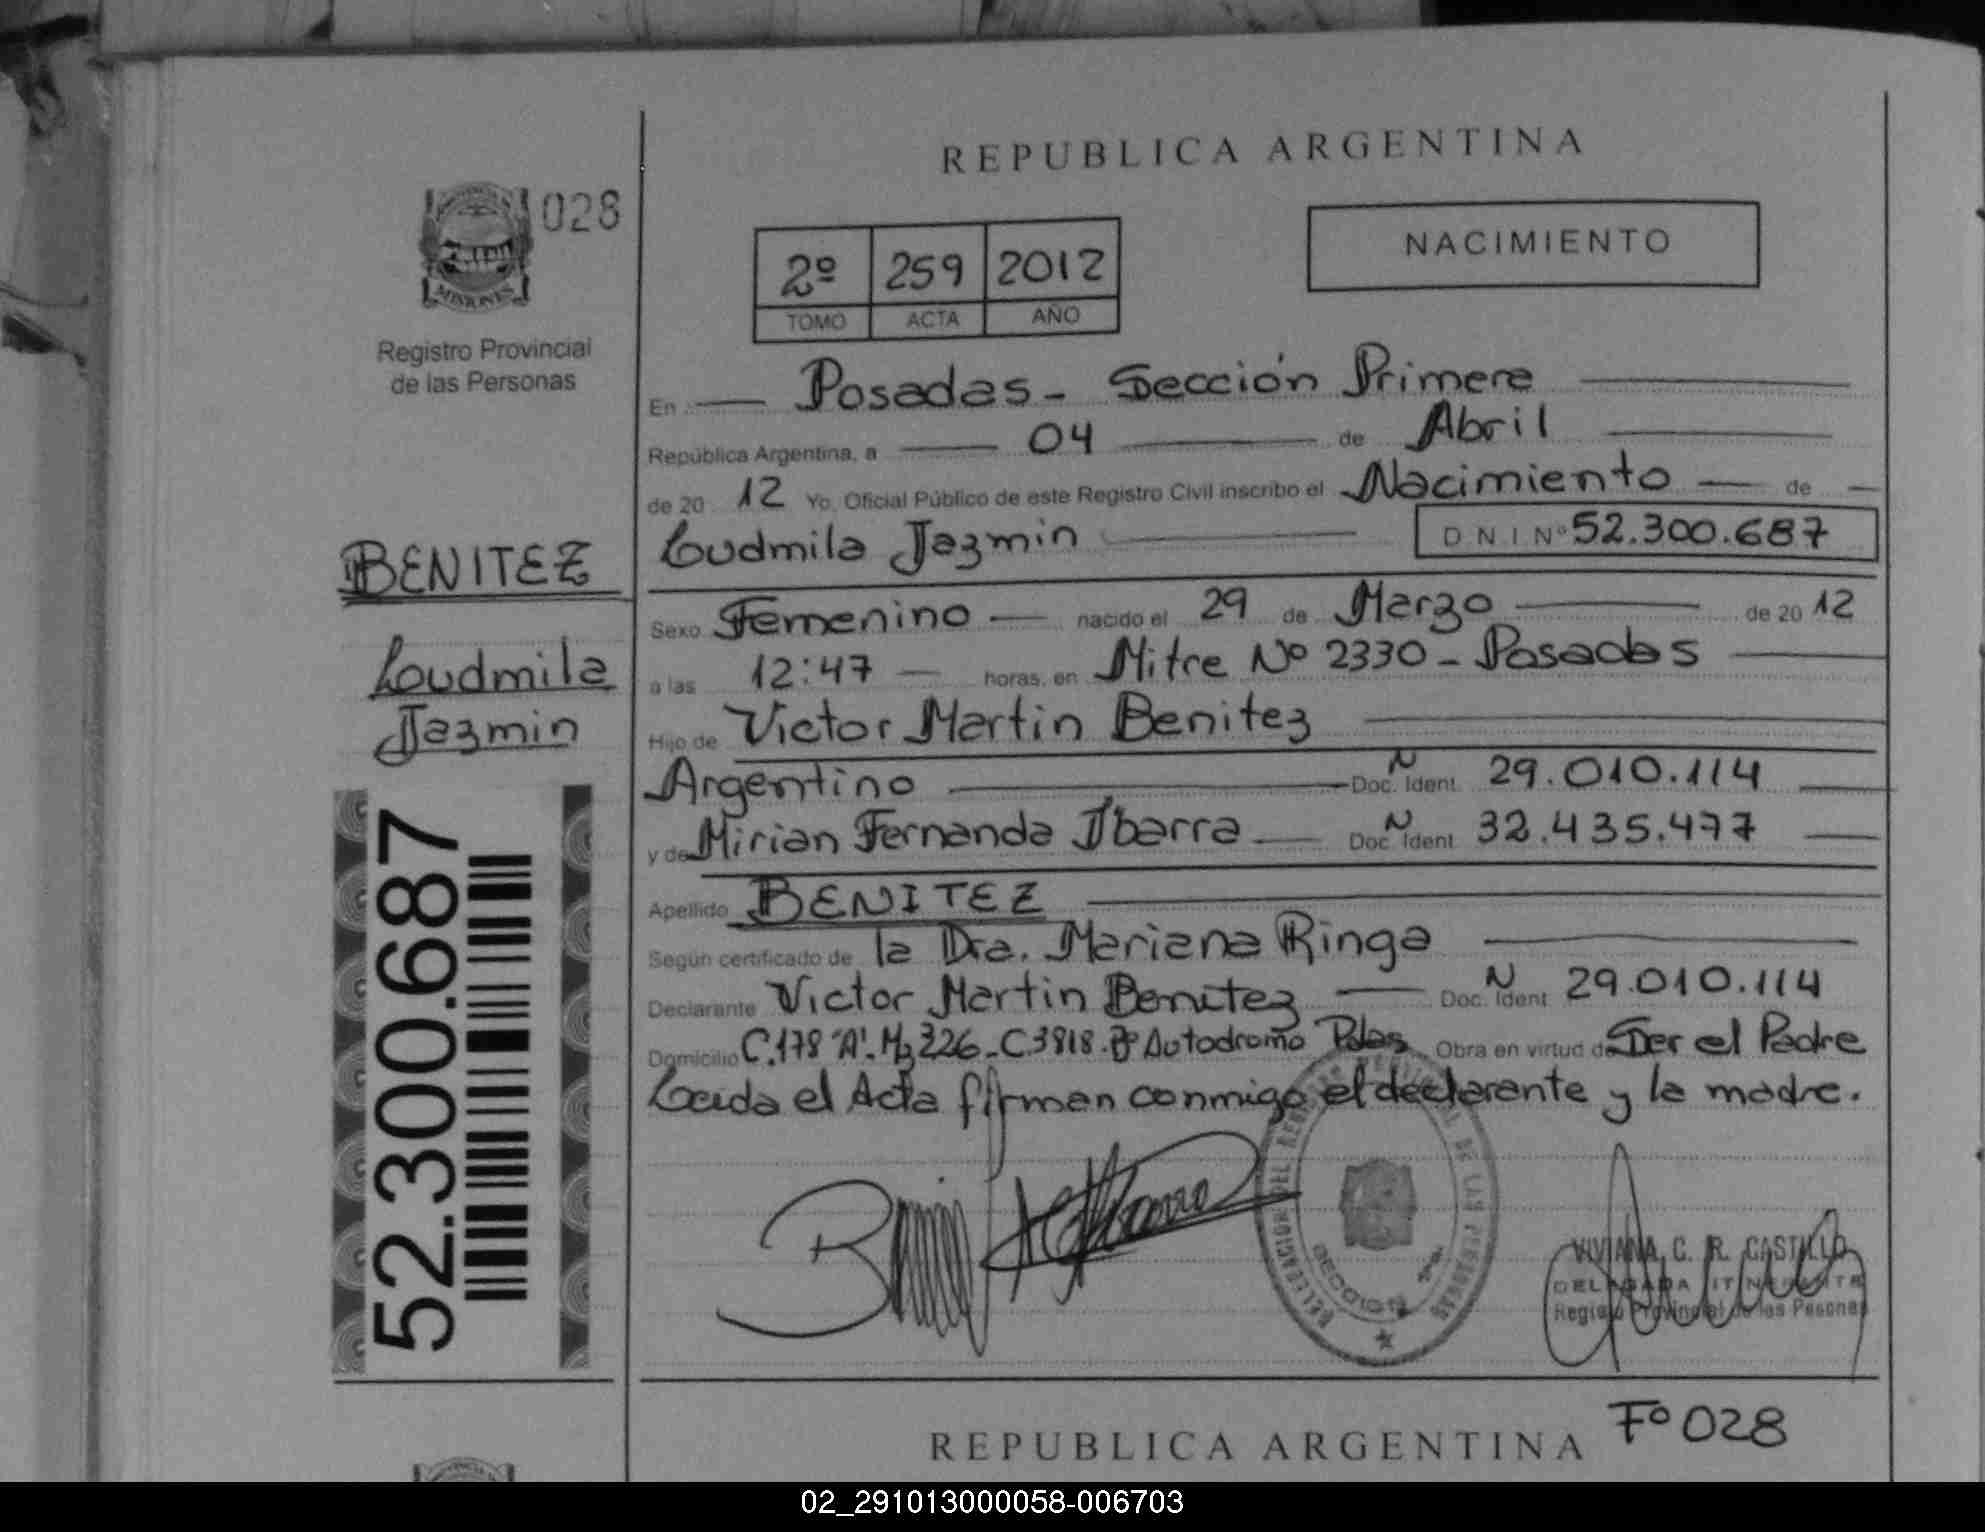 REPUBLICA ARGENTINA
028
MISIONES
Registro Provincial
de las Personas
2º 259 2012
TOMO ACTA AÑO
NACIMIENTO
En Posadas - Sección Primera
República Argentina, a 04 de Abril
de 20 12 Yo, Oficial Público de este Registro Civil inscribo el Nacimiento de
Ludmila Jazmin D N I Nº 52.300.687
BENITEZ
Ludmila
Jazmin
Sexo Femenino nacido el 29 de Marzo de 20 12
a las 12:47 horas, en Mitre Nº 2330 - Posadas
Hijo de Victor Martin Benitez
Argentino Doc. Ident. N 29.010.114
y de Mirian Fernanda Ibarra Doc. Ident. N 32.435.477
Apellido BENITEZ
Según certificado de la Dra. Mariana Ringa
Declarante Victor Martin Benitez Doc. Ident. N 29.010.114
Domicilio C.178 "A"- Mz 226 - C 3818 - Bº Autodromo Pdas Obra en virtud de Ser el Padre
Leida el Acta firman conmigo el declarante y la madre.
52.300.687
VIVIANA C. R. CASTILLO
DELEGADA ITINERANTE
Registro Provincial de las Personas
REPUBLICA ARGENTINA
Fº 028
02_291013000058-006703